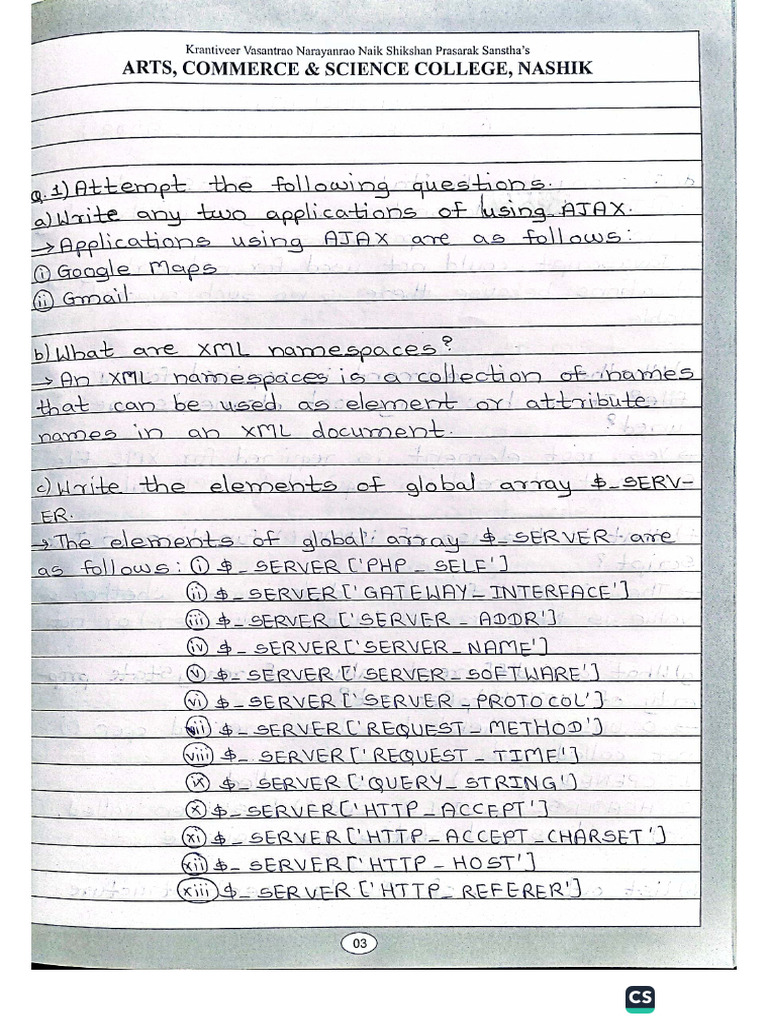 Krantiveer Vasantrao Narayanrao Naik Shikshan Prasarak Sanstha's
ARTS, COMMERCE & SCIENCE COLLEGE, NASHIK
Q.1) Attempt the following questions.
a) Write any two applications of using AJAX.
→ Applications using AJAX are as follows:
(i) Google Maps
(ii) Gmail
b) What are XML namespaces?
→ An XML namespaces is a collection of names
that can be used as element or attribute
names in an XML document.
c) Write the elements of global array $_SERV-
ER.
→ The elements of global array $_SERVER are
as follows: (i) $_SERVER['PHP_SELF']
(ii) $_SERVER['GATEWAY_INTERFACE']
(iii) $_SERVER ['SERVER_ADDR']
(iv) $_SERVER['SERVER_NAME']
(v) $_SERVER ['SERVER_SOFTWARE']
(vi) $_SERVER ['SERVER_PROTOCOL']
(vii) $_SERVER ['REQUEST_METHOD']
(viii) $_SERVER['REQUEST_TIME']
(ix) $_SERVER ['QUERY_STRING']
(x) $_SERVER['HTTP_ACCEPT']
(xi) $_SERVER ['HTTP_ACCEPT_CHARSET']
(xii) $_SERVER['HTTP_HOST']
(xiii) $_SERVER ['HTTP_REFERER']
03
CS